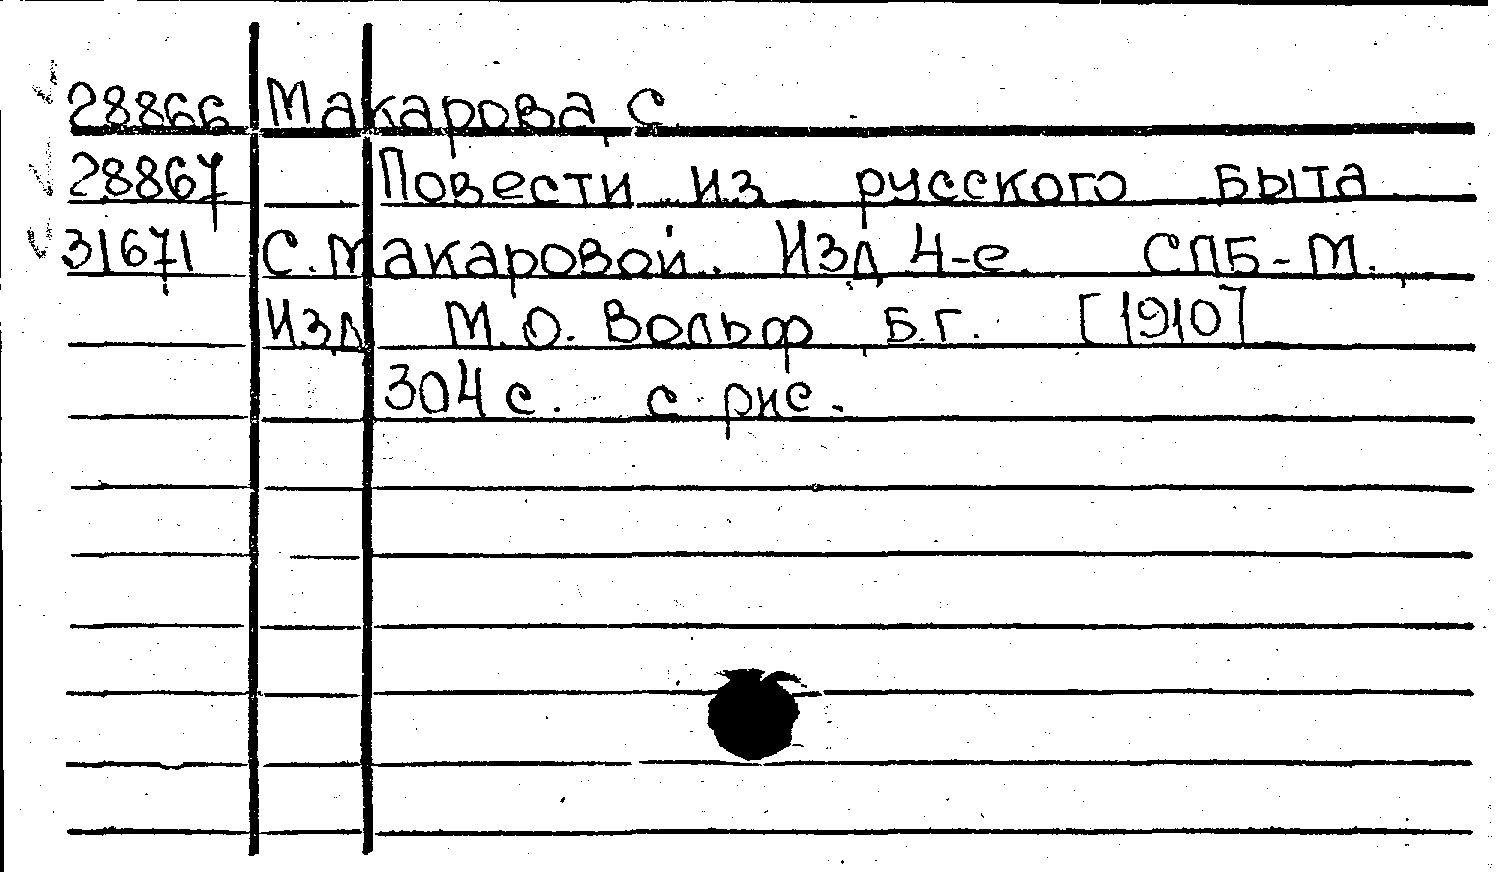 28866 Макарова С.
28867 Повести из русского быта
31671 С. Макаровой. Изд. 4-е. СПБ-М.,
Изд. М.О. Вольф, б.г. [1910]
304 с. с рис.